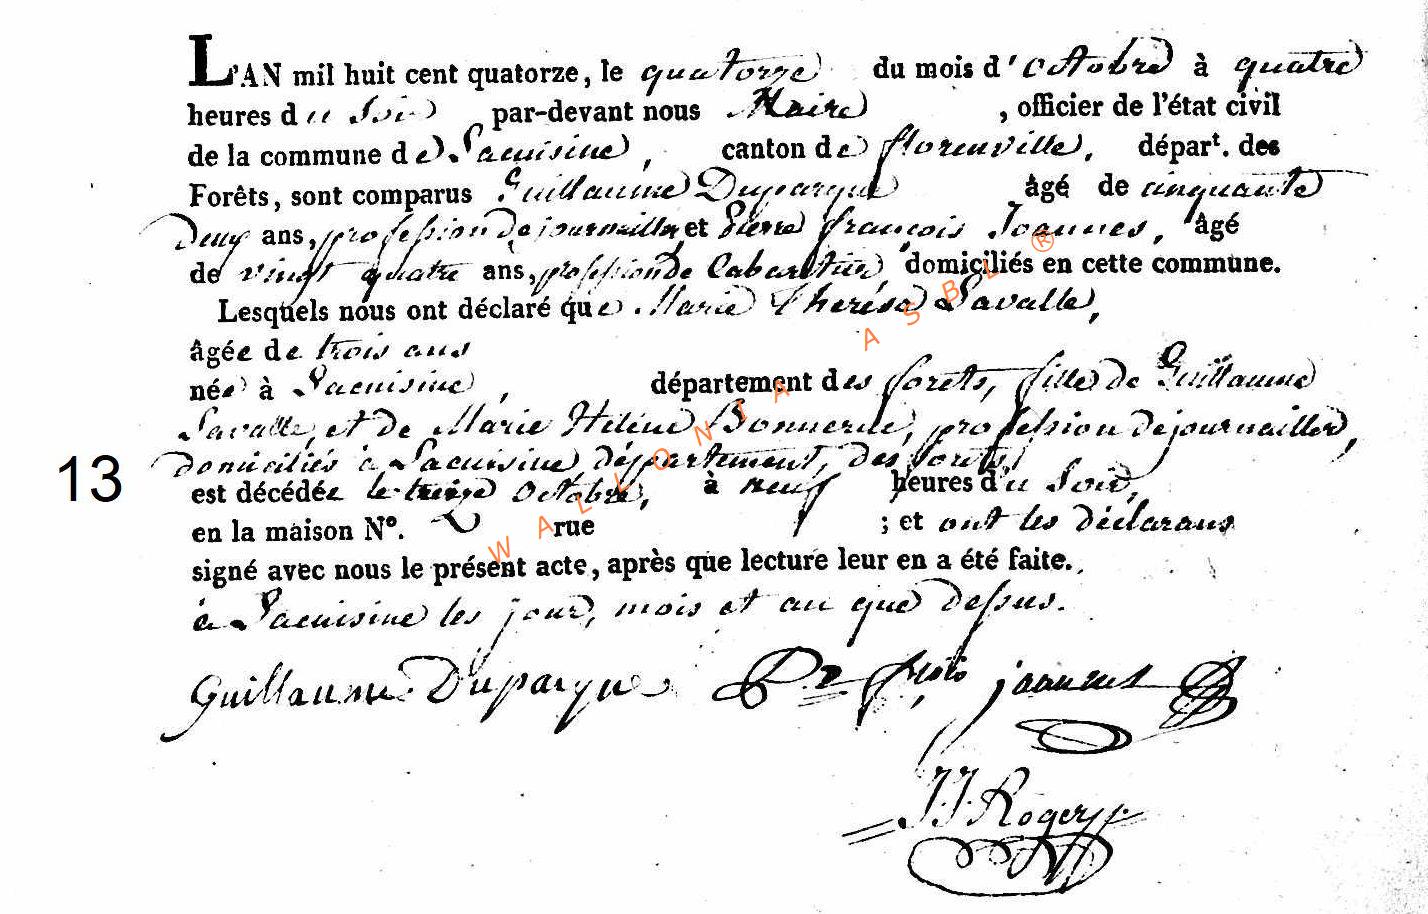 L'AN mil huit cent quatorze, le quatorze du mois d'octobre à quatre
heures du Soir par-devant nous Maire, officier de l'état civil
de la commune de Lacuisine, canton de florenville, départ. des
Forêts, sont comparus Guillaume Duparque âgé de cinquante
Deux ans, profession de journaillier, et Pierre françois Joannes, âgé
de vingt quatre ans, profession de Cabartier domiciliés en cette commune.
Lesquels nous ont déclaré que Marie Therése Lavalle,
âgée de trois ans
née à Lacuisine, département des forets, fille de Guillaume
Lavalle, et de Marie Héléne profession de journaillier,
13
domiciliés à Lacuisine département, des forets,
est décédée le treize octobre, à neuf heures du Soir,
en la maison N°. 2 rue ; et ont les déclarans
signé avec nous le présent acte, après que lecture leur en a été faite.
à Lacuisine les jour, mois et an que dessus.
Guillaume Duparque Pre frois joannes
J.J. Rogery
WALLONIA ASBL ®